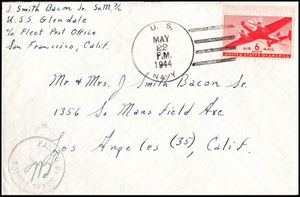 J. Smith Bacon Jr. SnM. 3/c
U.S.S. Glendale
c/o Fleet Post Office
San Francisco, Calif.
U. S.
MAY
22
P.M.
1944
NAVY
AIR 6 MAIL
UNITED STATES OF AMERICA
Mr & Mrs J Smith Bacon Sr.
1356 So Mansfield Ave
Los Angeles (35), Calif.
PASSED BY
NAVAL